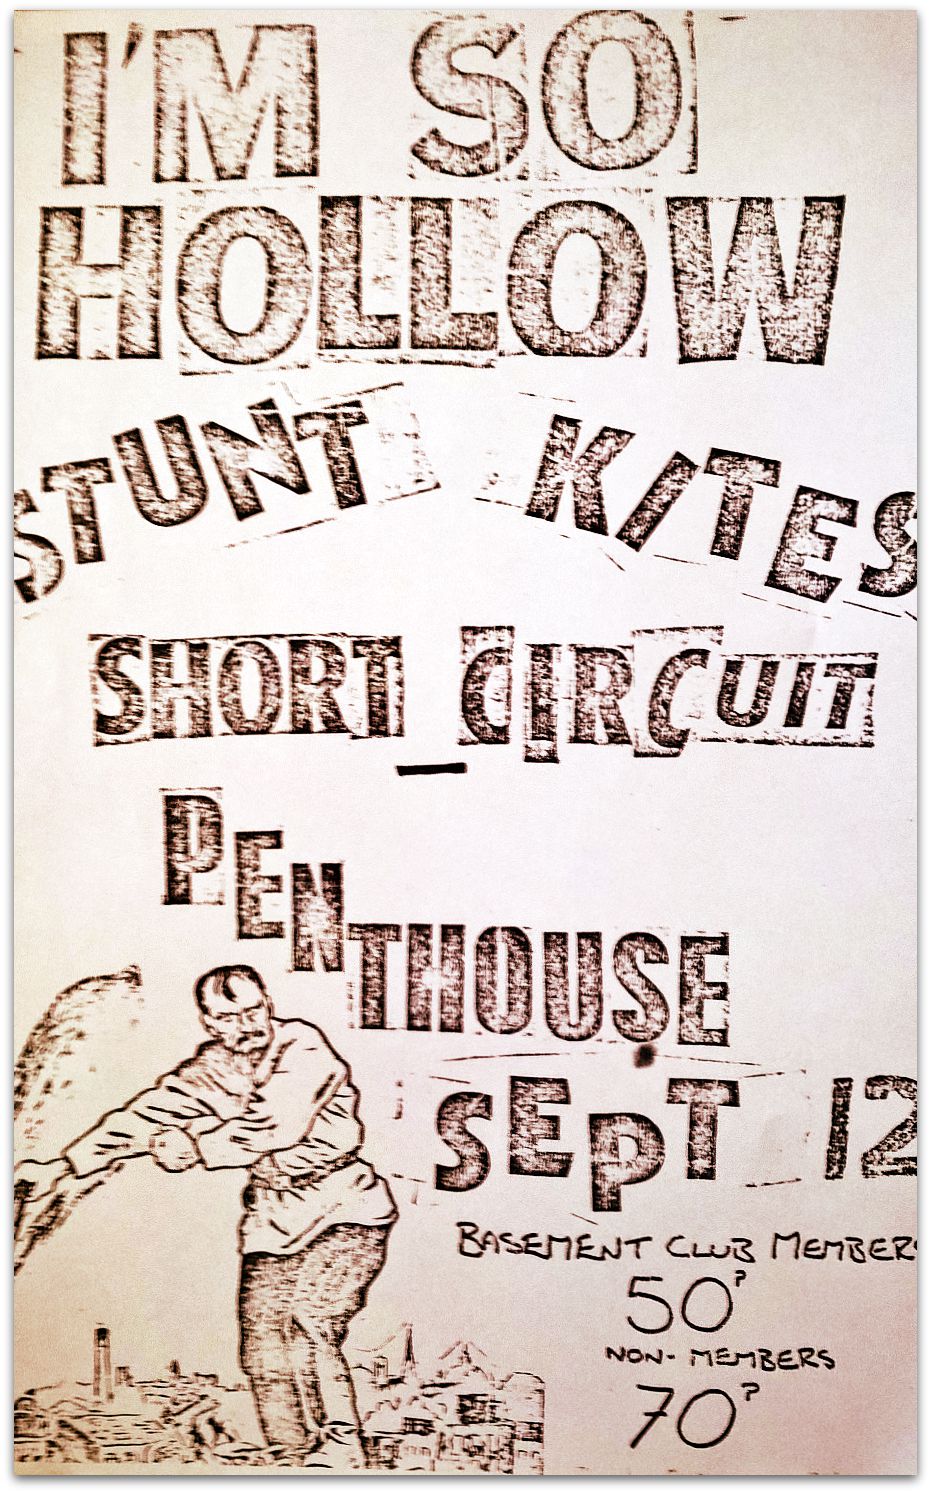 I'M SO
HOLLOW
STUNT KITES
SHORT CIRCUIT
PENTHOUSE
SEPT 12
BASEMENT CLUB MEMBERS
50P
NON-MEMBERS
70P